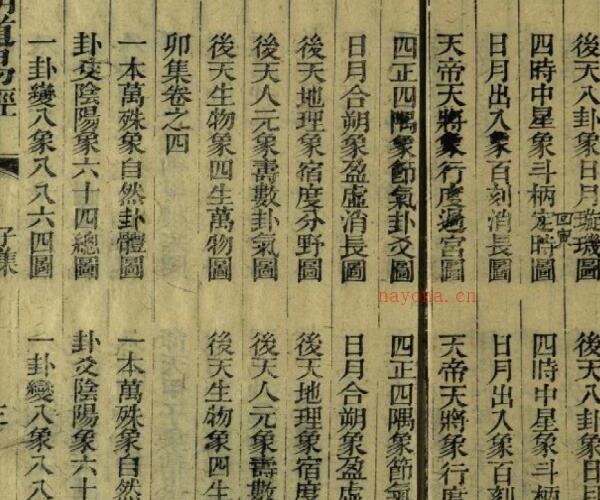 後天八卦象日月璇璣圖
四時中星象斗柄定時圖
回寅
日月出入象百刻消長圖
天帝天將象行度過宮圖
四正四隅象節氣卦爻圖
日月合朔象盈虛消長圖
後天地理象宿度分野圖
後天人元象壽數卦氣圖
後天生物象四生萬物圖
卯集卷之四
一本萬殊象自然卦體圖
卦爻陰陽象六十四總圖
一卦變八象八八六四圖
後天八卦象日月
四時中星象斗柄
日月出入象百刻
天帝天將象行度
四正四隅象節氣
日月合朔象盈虛
後天地理象宿度
後天人元象壽數
後天生物象四生
一本萬殊象自然
卦爻陰陽象六十
一卦變八象八八
道易經
子集
三
nayona.cn